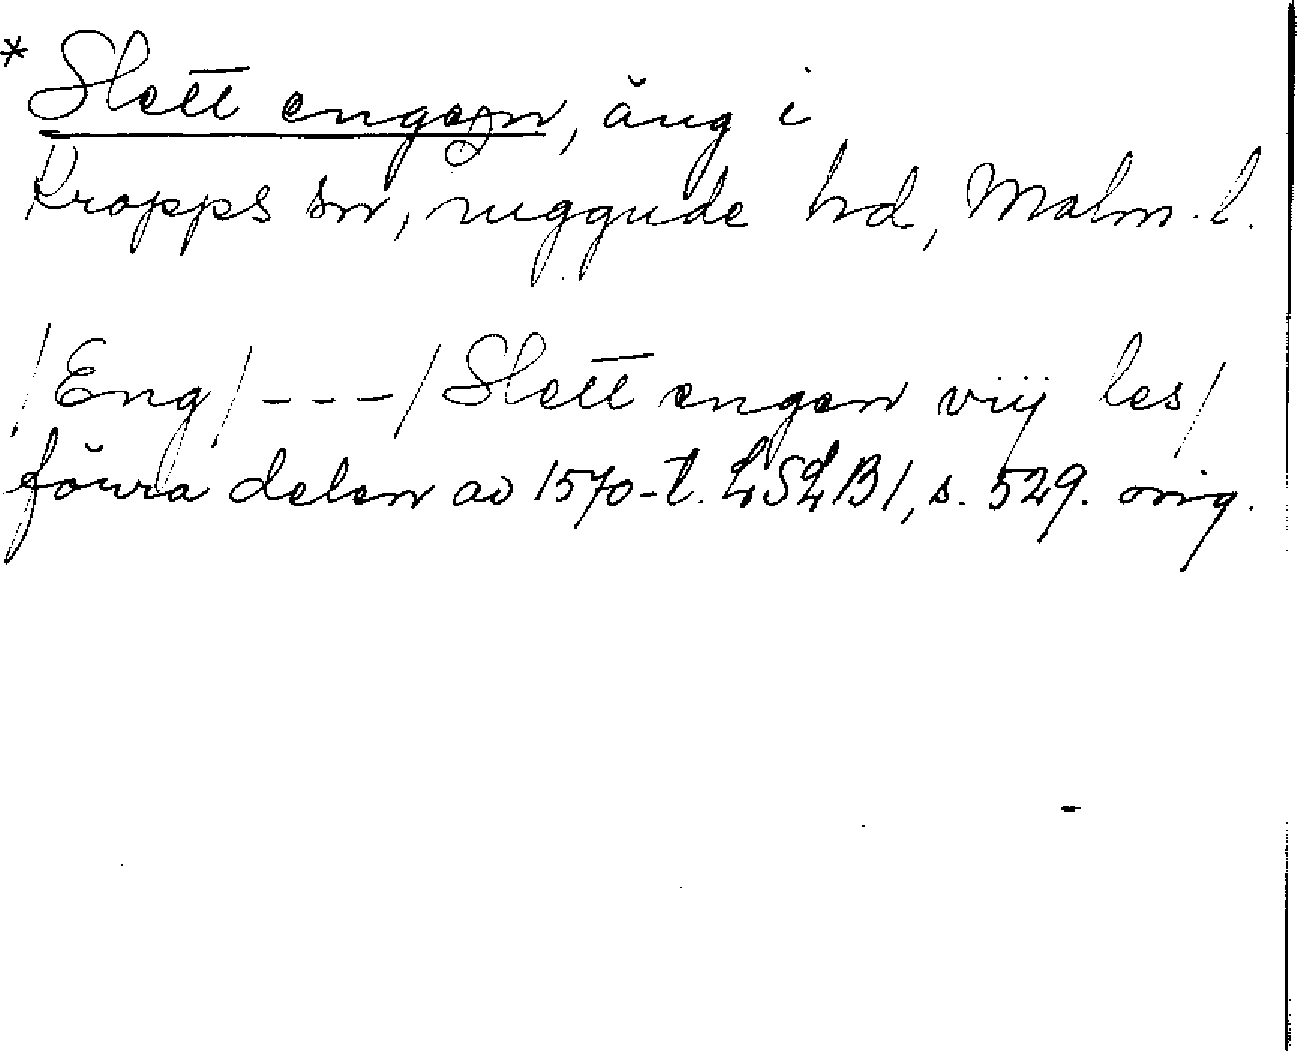 * Slett engen, äng i
Kropps sn, Luggude hd, Malm. l.
/Eng/ --- / Slett engen viij les/
förra delen av 1570-t. LSLB 1, s. 529. orig.